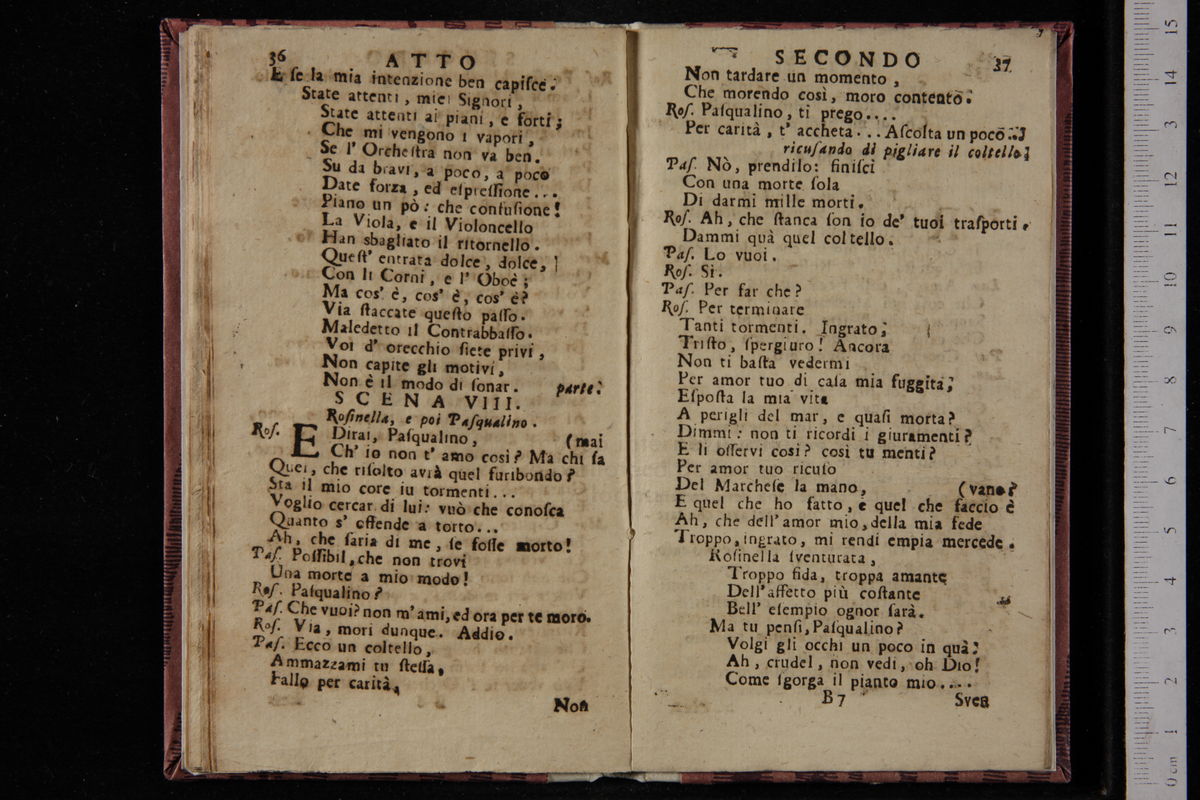 36 ATTO
E ſe la mia intenzione ben capiſce.
State attenti, miei Signori,
State attenti ai piani, e forti;
Che mi vengono i vapori,
Se l' Orcheſtra non va ben.
Su da bravi, a poco, a poco
Date forza, ed eſpreſſione...
Piano un pò: che confuſione!
La Viola, e il Violoncello
Han sbagliato il ritornello.
Queſt' entrata dolce, dolce,
Con li Corni, e l' Oboè;
Ma cos' è, cos' è, cos' è?
Via ſtaccate queſto paſſo.
Maledetto il Contrabbaſſo.
Voi d' orecchio ſiete privi,
Non capite gli motivi,
Non è il modo di ſonar. parte.
SCENA VIII.
Roſinella, e poi Paſqualino.
Roſ. E Dirai, Paſqualino, (mai
Ch' io non t' amo così? Ma chi ſa
Quei, che riſolto avrà quel furibondo?
Sta il mio core iu tormenti...
Voglio cercar di lui: vuò che conoſca
Quanto s' offende a torto...
Ah, che ſaria di me, ſe foſſe morto!
Paſ. Poſſibil, che non trovi
Una morte a mio modo!
Roſ. Paſqualino?
Paſ. Che vuoi? non m' ami, ed ora per te moro.
Roſ. Via, mori dunque. Addio.
Paſ. Ecco un coltello,
Ammazzami tu ſteſſa,
Fallo per carità,
Non
SECONDO 37
Non tardare un momento,
Che morendo così, moro contento.
Roſ. Paſqualino, ti prego....
Per carità, t' accheta... Aſcolta un poco...
ricuſando di pigliare il coltello
Paſ. Nò, prendilo: finiſci
Con una morte ſola
Di darmi mille morti.
Roſ. Ah, che ſtanca ſon io de' tuoi traſporti.
Dammi quà quel coltello.
Paſ. Lo vuoi.
Roſ. Sì.
Paſ. Per far che?
Roſ. Per terminare
Tanti tormenti. Ingrato;
Triſto, ſpergiuro! Ancora
Non ti baſta vedermi
Per amor tuo di caſa mia fuggita;
Eſpoſta la mia vita
A perigli del mar, e quaſi morta?
Dimmi: non ti ricordi i giuramenti?
E li oſſervi così? così tu menti?
Per amor tuo ricuſo
Del Marcheſe la mano, (vano?
E quel che ho fatto, e quel che faccio è
Ah, che dell' amor mio, della mia fede
Troppo, ingrato, mi rendi empia mercede.
Roſinella ſventurata,
Troppo fida, troppa amante
Dell' affetto più coſtante
Bell' eſempio ognor ſarà.
Ma tu penſi, Paſqualino?
Volgi gli occhi un poco in quà:
Ah, crudel, non vedi, oh Dio!
Come ſgorga il pianto mio....
B 7 Sven